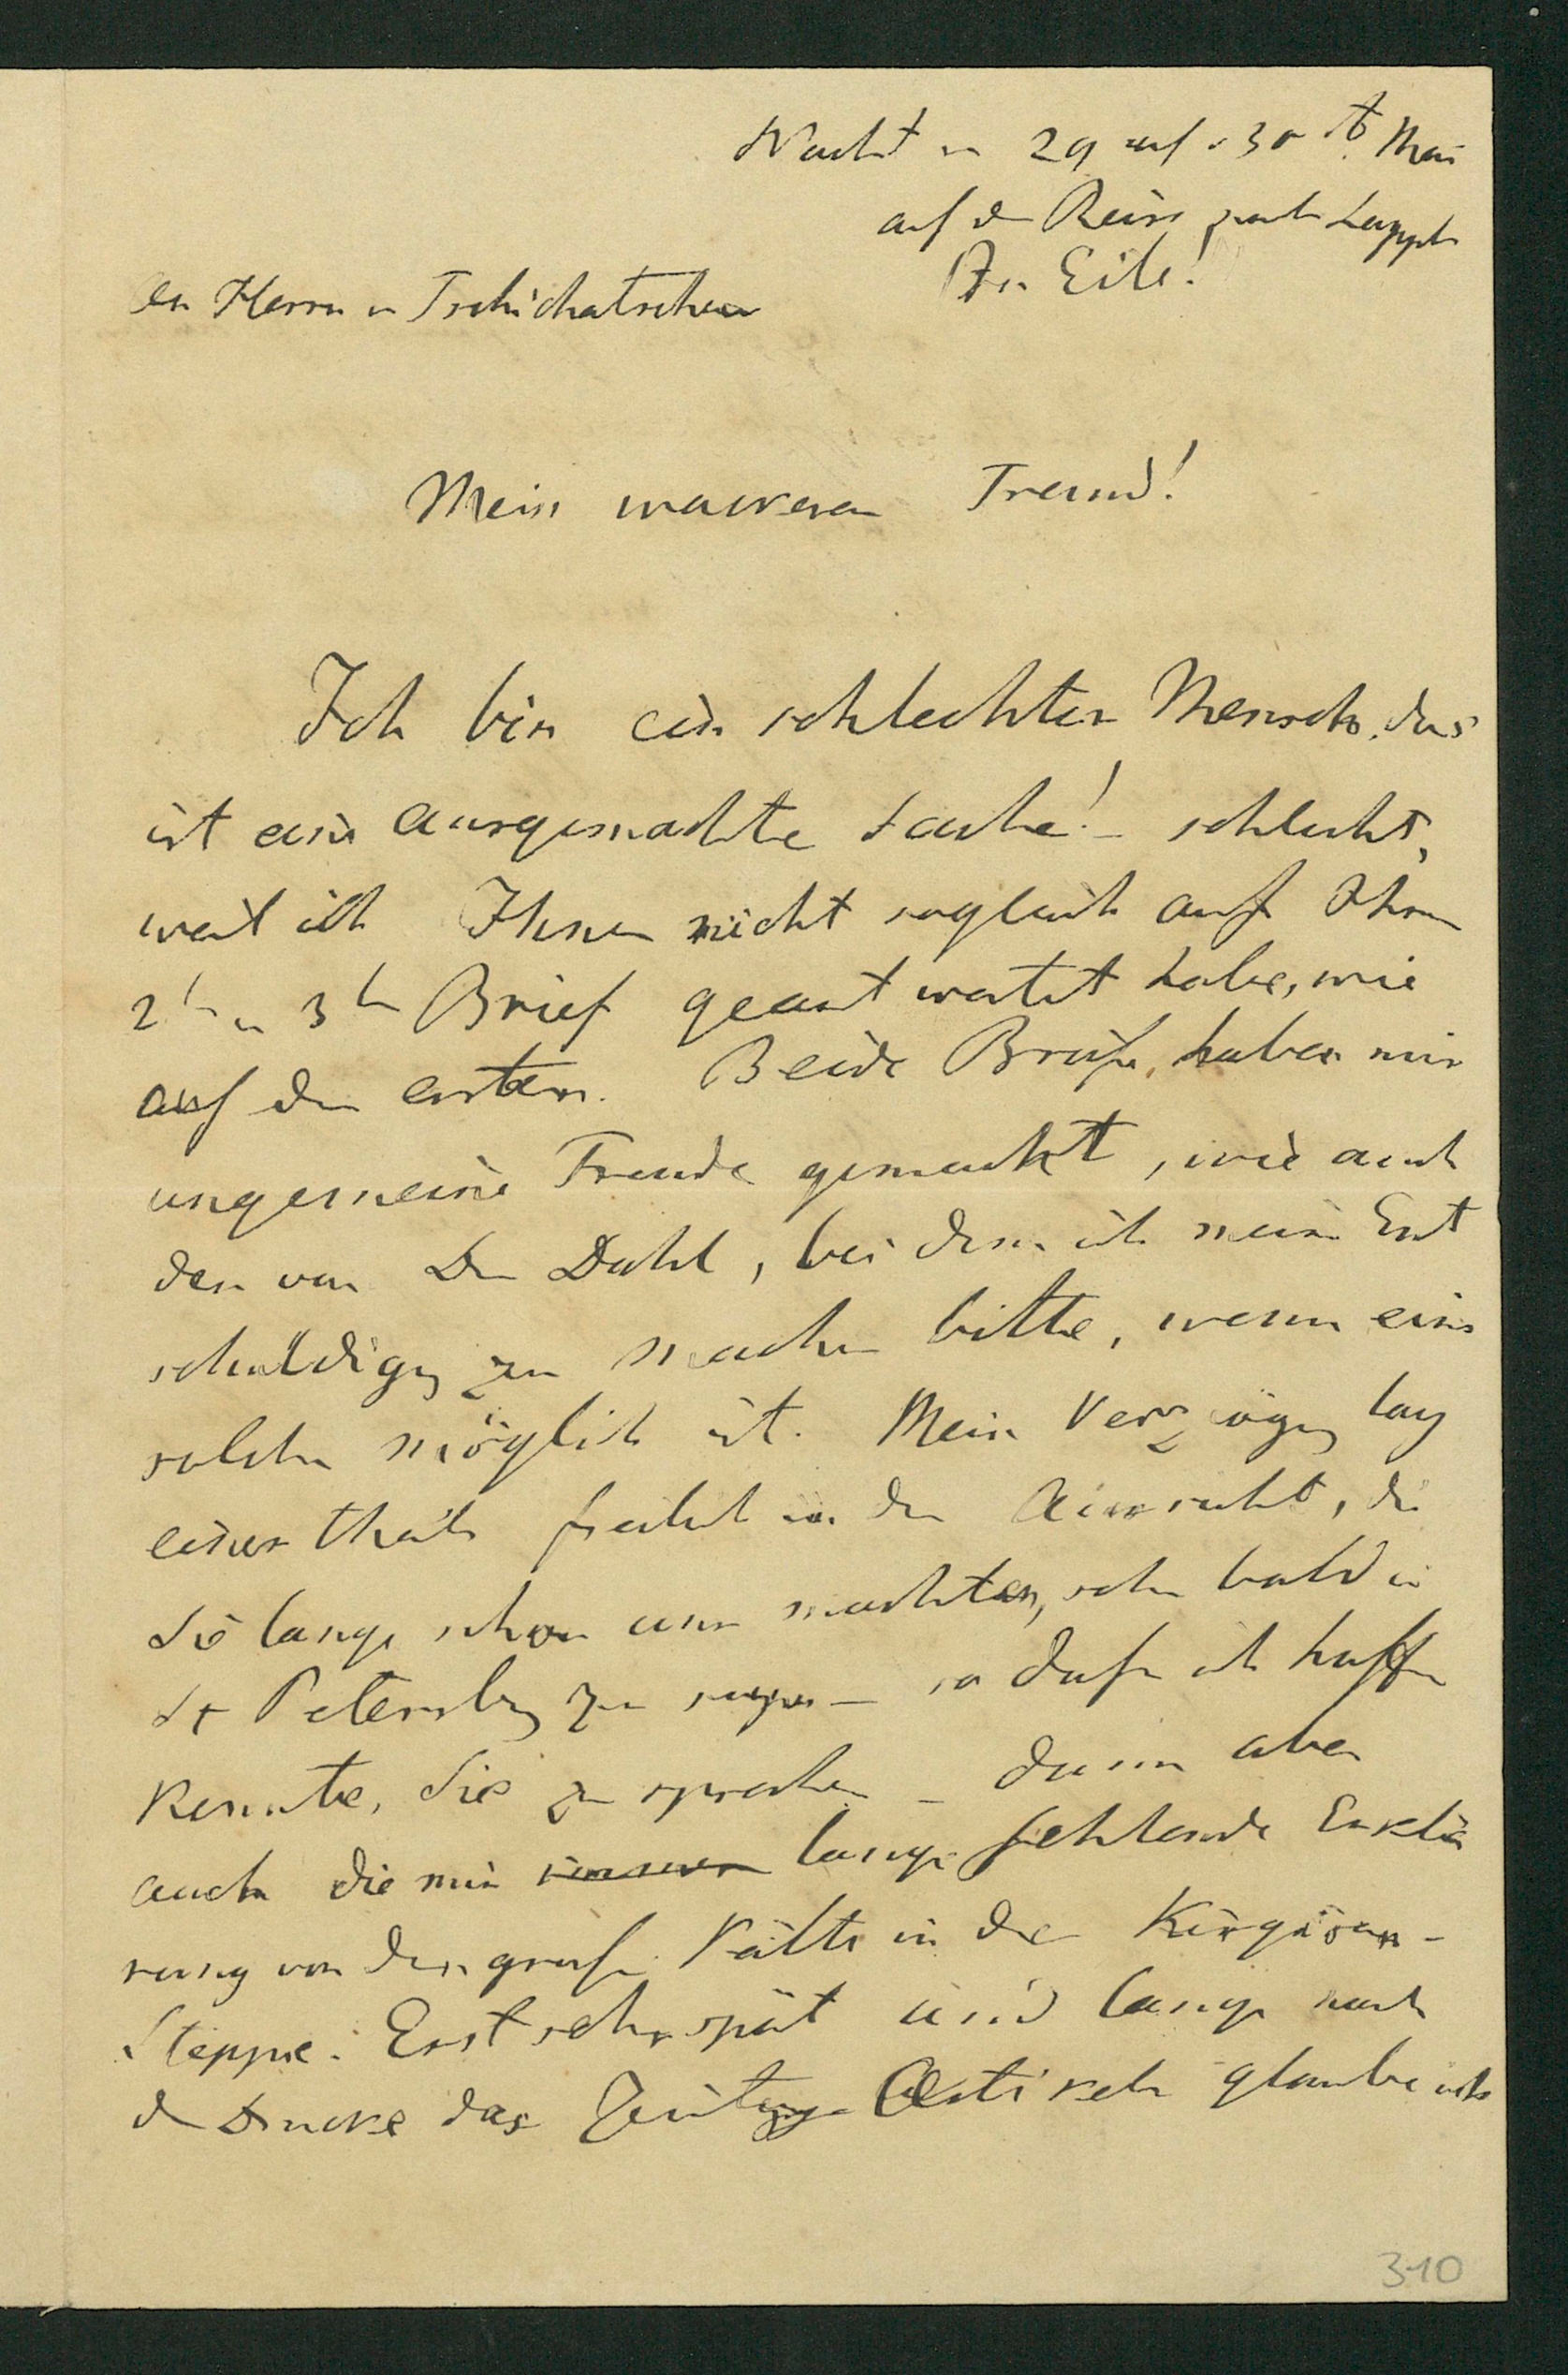 Nacht v 29 auf d 30 t. Mai
auf d Reise nach Lappl
In Eile!
An Herrn v Tschichatschew
Mein wackerer Freund!
Ich bin ein schlechter Mensch, das
ist eine ausgemachte Sache! – schlecht,
weil ich Ihnen nicht sogleich auf Ihren
2t u 3t Brief geantwortet habe, wie
auf den ersten. Beide Briefe, haben mir
ungemeine Freude gemacht, wie auch
der von Dr Dahl, bei dem ich meine Ent
schuldigg zu machen bitte, wenn eine
solche möglich ist. Mein Verzögrg lag
einer theils in der Aussicht, die
Sie lange schon uns machten, sehr bald in
St Petersbg zu – so dass ich hoffen
konnte, Sie zu sprechen – dann aber
auch die mir lange fehlende Erklä
rung von der grossen Kälte in der Kirgisen-
Steppe. Erst sehr spät und lange nach
d Drucke des Zeitungs Artikels glaube ich
310